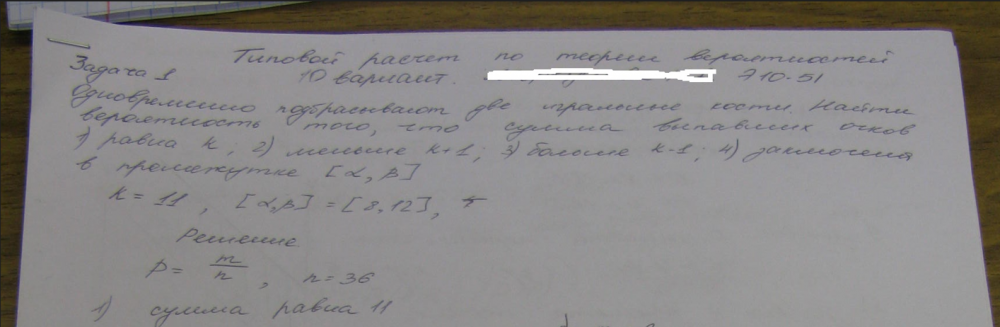 Типовой расчет по теории вероятностей
Задача 1 10 вариант. Э10-51
Одновременно подбрасывают две игральные кости. Найти
вероятность того, что сумма выпавших очков
1) равна k; 2) меньше k+1; 3) больше k-1; 4) заключена
в промежутке [α, β]
k = 11, [α,β] = [8,12],
Решение
P = m/n, n = 36
1) сумма равна 11